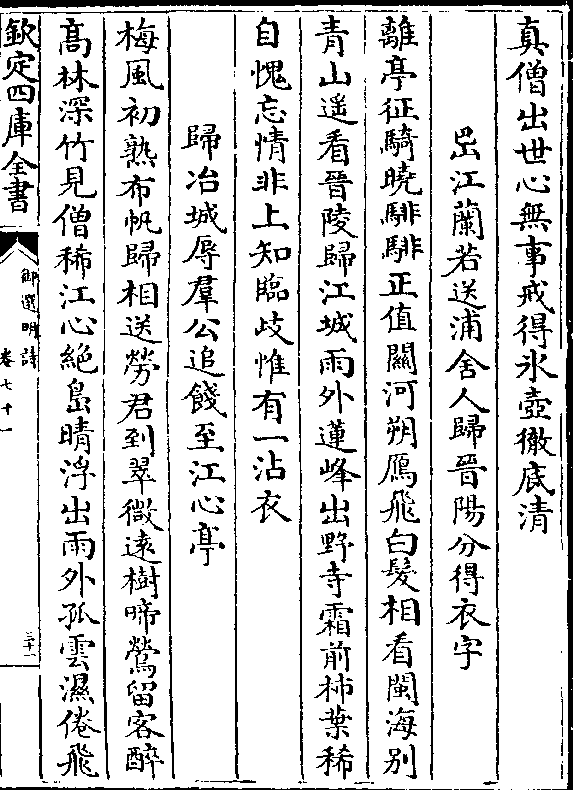 真僧出世心無事戒得氷壺徹底清
岊江蘭若送浦舍人歸晉陽分得衣字
離亭征騎曉騑騑正值關河朔鴈飛白髮相看閩海別
青山遥看晉陵歸江城雨外蓮峰出野寺霜前柿葉稀
自愧忘情非上知臨歧惟有一沾衣
歸冶城辱羣公追餞至江心亭
梅風初熟布帆歸相送勞君到翠微逺樹啼鶯留客醉
髙林深竹見僧稀江心絶島晴浮出雨外孤雲濕倦飛
欽定四庫全書
御選明詩
卷七十一
三十一